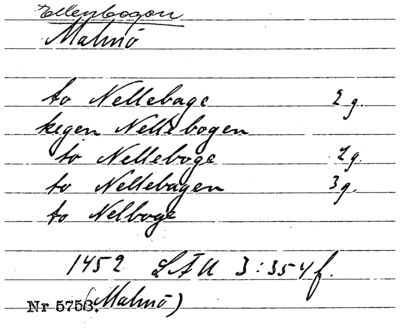 Ellenbogen
Malmö
to Nellebage 2 g.
kegen Nellebogen
to Nelleboge 2 g.
to Nellebagen 3 g.
to Nelboge
1452 LÄU 3:354 f.
Nr 5758. (Malmö)